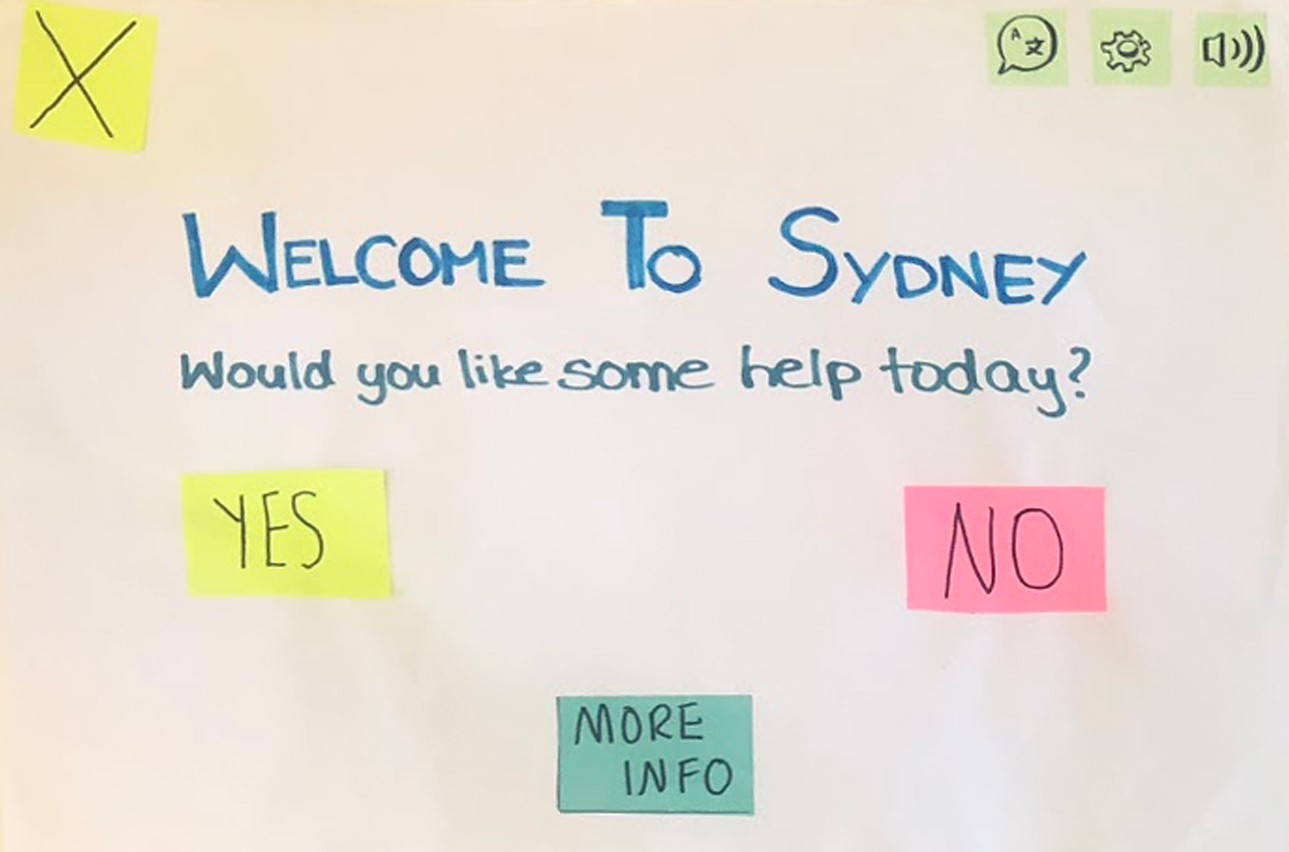 X
A 文
WELCOME TO SYDNEY
Would you like some help today?
YES
NO
MORE
INFO